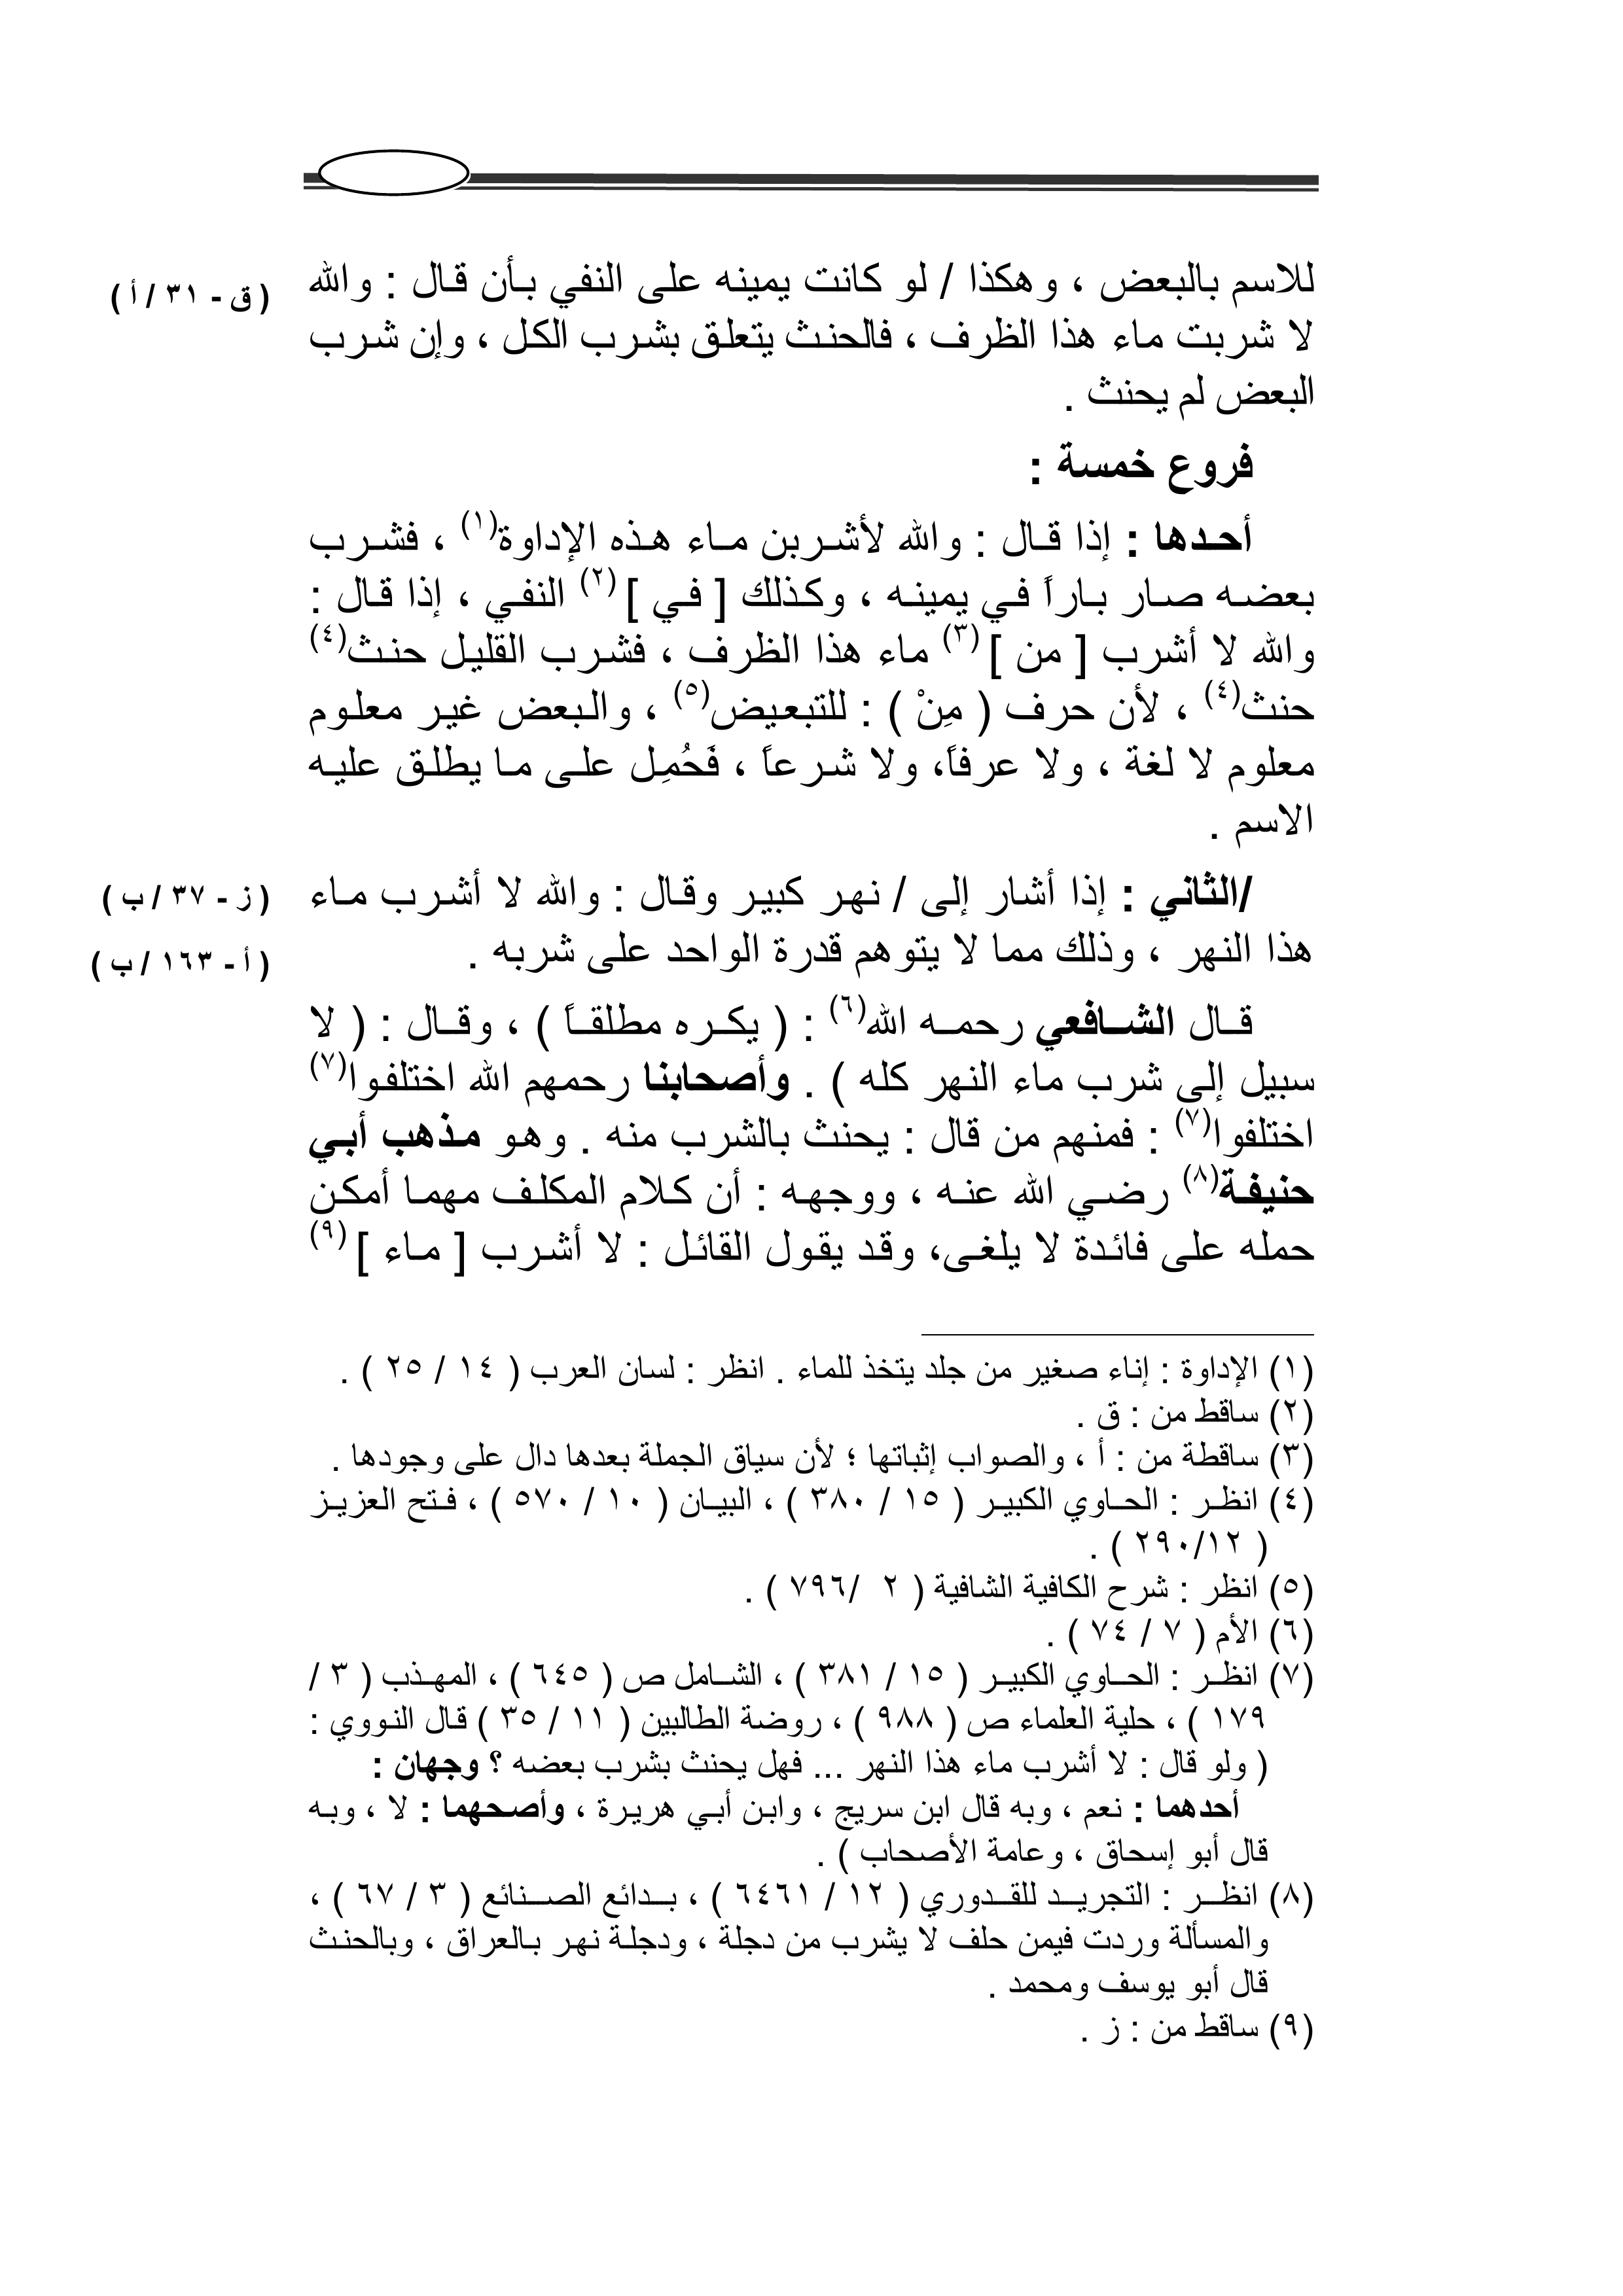 للاسم بالبعض ، وهكذا / لو كانت يمينه على النفي بأن قال : والله
( ق - ٣١ / أ )
لا شربت ماء هذا الظرف ، فالحنث يتعلق بشرب الكل ، وإن شرب
البعض لم يحنث .
فروع خمسة :
أحدها : إذا قال : والله لأشربن ماء هذه الإداوة(١) ، فشرب
بعضه صار باراً في يمينه ، وكذلك [ في ] (٢) النفي ، إذا قال :
والله لا أشرب [ من ] (٣) ماء هذا الظرف ، فشرب القليل حنث(٤)
حنث(٤) ، لأن حرف ( مِنْ ) : للتبعيض(٥) ، والبعض غير معلوم
معلوم لا لغة ، ولا عرفاً، ولا شرعاً ، فَحُمِل على ما يطلق عليه
الاسم .
/الثاني : إذا أشار إلى / نهر كبير وقال : والله لا أشرب ماء
( ز - ٣٧ / ب )
هذا النهر ، وذلك مما لا يتوهم قدرة الواحد على شربه .
( أ - ١٦٣ / ب )
قال الشافعي رحمه الله(٦) : ( يكره مطلقاً ) ، وقال : ( لا
سبيل إلى شرب ماء النهر كله ) . وأصحابنا رحمهم الله اختلفوا(٧)
اختلفوا(٧) : فمنهم من قال : يحنث بالشرب منه . وهو مذهب أبي
حنيفة(٨) رضي الله عنه ، ووجهه : أن كلام المكلف مهما أمكن
حمله على فائدة لا يلغى، وقد يقول القائل : لا أشرب [ ماء ] (٩)
(١) الإداوة : إناء صغير من جلد يتخذ للماء . انظر : لسان العرب ( ١٤ / ٢٥ ) .
(٢) ساقط من : ق .
(٣) ساقطة من : أ ، والصواب إثباتها ؛ لأن سياق الجملة بعدها دال على وجودها .
(٤) انظر : الحاوي الكبير ( ١٥ / ٣٨٠ ) ، البيان ( ١٠ / ٥٧٠ ) ، فتح العزيز
( ٢٩٠/١٢ ) .
(٥) انظر : شرح الكافية الشافية ( ٢ /٧٩٦ ) .
(٦) الأم ( ٧ / ٧٤ ) .
(٧) انظر : الحاوي الكبير ( ١٥ / ٣٨١ ) ، الشامل ص ( ٦٤٥ ) ، المهذب ( ٣ /
١٧٩ ) ، حلية العلماء ص ( ٩٨٨ ) ، روضة الطالبين ( ١١ / ٣٥ ) قال النووي :
( ولو قال : لا أشرب ماء هذا النهر ... فهل يحنث بشرب بعضه ؟ وجهان :
أحدهما : نعم ، وبه قال ابن سريج ، وابن أبي هريرة ، وأصحهما : لا ، وبه
قال أبو إسحاق ، وعامة الأصحاب ) .
(٨) انظر : التجريد للقدوري ( ١٢ / ٦٤٦١ ) ، بدائع الصنائع ( ٣ / ٦٧ ) ،
والمسألة وردت فيمن حلف لا يشرب من دجلة ، ودجلة نهر بالعراق ، وبالحنث
قال أبو يوسف ومحمد .
(٩) ساقط من : ز .